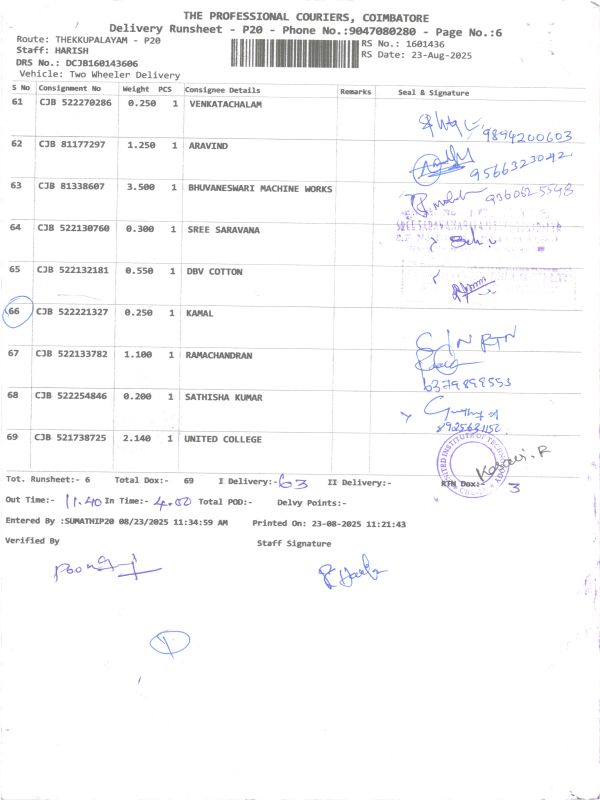 THE PROFESSIONAL COURIERS, COIMBATORE
Delivery Runsheet - P20 - Phone No.:9047080280 - Page No.:6
Route: THEKKUPALAYAM - P20
RS No.: 1601436
Staff: HARISH
RS Date: 23-Aug-2025
DRS No.: DCJB160143606
Vehicle: Two Wheeler Delivery
S No Consignment No Weight PCS Consignee Details Remarks Seal & Signature
61 CJB 522270286 0.250 1 VENKATACHALAM
9894200603
62 CJB 81177297 1.250 1 ARAVIND
9566323042
63 CJB 81338607 3.500 1 BHUVANESWARI MACHINE WORKS
9360625548
64 CJB 522130760 0.300 1 SREE SARAVANA
65 CJB 522132181 0.550 1 DBV COTTON
66 CJB 522221327 0.250 1 KAMAL
S/N RTN
67 CJB 522133782 1.100 1 RAMACHANDRAN
6379899553
68 CJB 522254846 0.200 1 SATHISHA KUMAR
8925631152
69 CJB 521738725 2.140 1 UNITED COLLEGE
UNITED INSTITUTE OF TECHNOLOGY
Kesavi.R
Tot. Runsheet:- 6 Total Dox:- 69 I Delivery:-63 II Delivery:- RTN Dox:- 3
Out Time:- 11.40 In Time:- 4.00 Total POD:- Delvy Points:-
Entered By :SUMATHIP20 08/23/2025 11:34:59 AM Printed On: 23-08-2025 11:21:43
Verified By Staff Signature